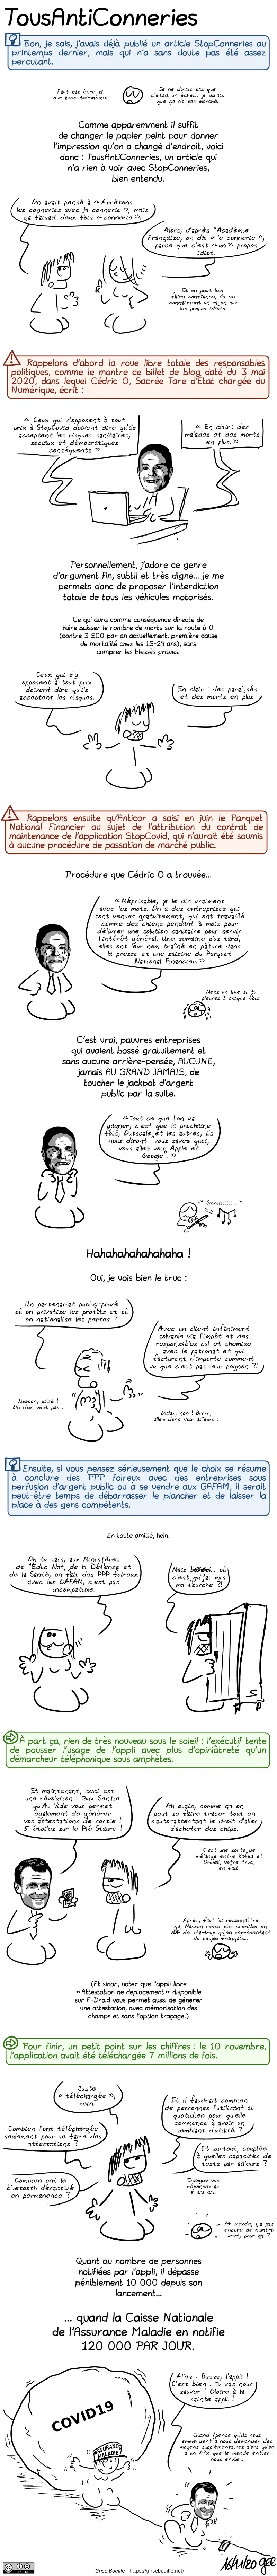 TousAntiConneries
Bon, je sais, j'avais déjà publié un article StopConneries au
printemps dernier, mais qui n'a sans doute pas été assez
percutant.
Faut pas être si
dur avec toi-même.
Je ne dirais pas que
c'était un échec, je dirais
que ça n'a pas marché.
Comme apparemment il suffit
de changer le papier peint pour donner
l'impression qu'on a changé d'endroit, voici
donc : TousAntiConneries, un article qui
n'a rien à voir avec StopConneries,
bien entendu.
On avait pensé à « Arrêtons
les conneries avec la connerie », mais
ça faisait deux fois « connerie ».
Alors, d'après l'Académie
Française, on dit « le connerie »,
parce que c'est « un » propos
idiot.
Et on peut leur
faire confiance, ils en
connaissent un rayon sur
les propos idiots.
Rappelons d'abord la roue libre totale des responsables
politiques, comme le montre ce billet de blog daté du 3 mai
2020, dans lequel Cédric O, Sacrée Tare d'État chargée du
Numérique, écrit :
« Ceux qui s'opposent à tout
prix à StopCovid doivent dire qu'ils
acceptent les risques sanitaires,
sociaux et démocratiques
conséquents. »
« En clair : des
malades et des morts
en plus. »
Personnellement, j'adore ce genre
d'argument fin, subtil et très digne... je me
permets donc de proposer l'interdiction
totale de tous les véhicules motorisés.
Ce qui aura comme conséquence directe de
faire baisser le nombre de morts sur la route à 0
(contre 3 500 par an actuellement, première cause
de mortalité chez les 15-24 ans), sans
compter les blessés graves.
Ceux qui s'y
opposent à tout prix
doivent dire qu'ils
acceptent les risques.
En clair : des paralysés
et des morts en plus.
Rappelons ensuite qu'Anticor a saisi en juin le Parquet
National Financier au sujet de l'attribution du contrat de
maintenance de l'application StopCovid, qui n'aurait été soumis
à aucune procédure de passation de marché public.
Procédure que Cédric O a trouvée...
« Méprisable, je le dis vraiment
avec les mots. On a des entreprises qui
sont venues gratuitement, qui ont travaillé
comme des chiens pendant 3 mois pour
délivrer une solution sanitaire pour servir
l'intérêt général. Une semaine plus tard,
elles ont leur nom traîné en pâture dans
la presse et une saisine du Parquet
National Financier. »
Mets un like si tu
pleures à chaque fois.
C'est vrai, pauvres entreprises
qui avaient bossé gratuitement et
sans aucune arrière-pensée, AUCUNE,
jamais AU GRAND JAMAIS, de
toucher le jackpot d'argent
public par la suite.
« Tout ce que l'on va
gagner, c'est que la prochaine
fois, Outscale et les autres, ils
nous diront vous savez quoi,
vous allez voir Apple et
Google. »
Hahahahahahahaha !
Oui, je vois bien le truc :
Un partenariat public-privé
où on privatise les profits et où
on nationalise les pertes ?
Avec un client infiniment
solvable via l'impôt et des
responsables cul et chemise
avec le patronat et qui
facturent n'importe comment
vu que c'est pas leur pognon ?!
Nooooon, pitié !
On n'en veut pas !
Ohlala, non ! Brrrr,
allez donc voir ailleurs !
Ensuite, si vous pensez sérieusement que le choix se résume
à conclure des PPP foireux avec des entreprises sous
perfusion d'argent public ou à se vendre aux GAFAM, il serait
peut-être temps de débarrasser le plancher et de laisser la
place à des gens compétents.
En toute amitié, hein.
Oh tu sais, aux Ministères
de l'Éduc Nat, de la Défense et
de la Santé, on fait des PPP foireux
avec les GAFAM, c'est pas
incompatible.
où
c'est qu'j'ai mis
ma fourche ?!
À part ça, rien de très nouveau sous le soleil : l'exécutif tente
de pousser l'usage de l'appli avec plus d'opiniâtreté qu'un
démarcheur téléphonique sous amphètes.
Et maintenant, ceci est
une révolution : Toux Sentie
Qu'Au Vide vous permet
également de générer
vos attestations de sortie !
5 étoiles sur le Plé Staure !
Ah ouais, comme ça on
peut se faire tracer tout en
s'auto-attestant le droit d'aller
s'acheter des chips.
C'est une sorte de
mélange entre Kafka et
Orwell, votre truc,
en fait.
Après, faut lui reconnaître
ça, Macron reste plus crédible en
VRP de start-up qu'en représentant
du peuple français...
(Et sinon, notez que l'appli libre
« Attestation de déplacement » disponible
sur F-Droid vous permet aussi de générer
une attestation, avec mémorisation des
champs et sans l'option traçage.)
Pour finir, un petit point sur les chiffres : le 10 novembre,
l'application avait été téléchargée 7 millions de fois.
Juste
« téléchargée »,
hein.
Combien l'ont téléchargée
seulement pour se faire des
attestations ?
Combien ont le
bluetooth désactivé
en permanence ?
Et il faudrait combien
de personnes l'utilisant au
quotidien pour qu'elle
commence à avoir un
semblant d'utilité ?
Et surtout, couplée
à quelles capacités de
tests par ailleurs ?
Envoyez vos
réponses au
8 12 12.
Ah merde, y'a pas
encore de numéro
vert, pour ça ?
Quant au nombre de personnes
notifiées par l'appli, il dépasse
péniblement 10 000 depuis son
lancement...
... quand la Caisse Nationale
de l'Assurance Maladie en notifie
120 000 PAR JOUR.
COVID19
ASSURANCE
MALADIE
Allez ! Bzzzz, l'appli !
C'est bien ! Tu vas nous
sauver ! Gloire à la
sainte appli !
Quand j'pense qu'ils nous
emmerdent à nous demander des
moyens supplémentaires alors qu'on
a un APK que le monde entier
nous envie...
Grise Bouille - https://grisebouille.net/